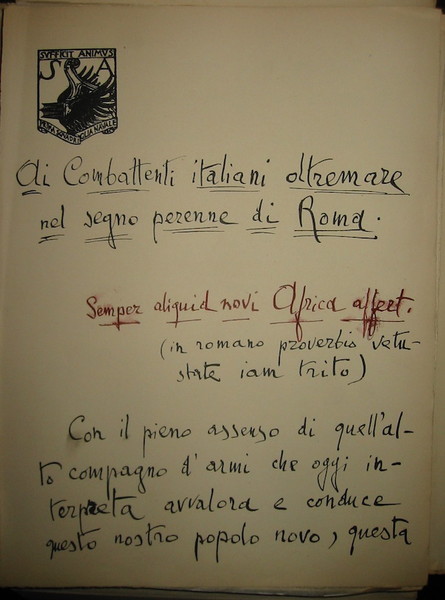 SVFFICIT ANIMVS
S A
Ai Combattenti italiani oltremare
nel segno perenne di Roma.
Semper aliquid novi Africa affert.
(in romano proverbio vetu-
state iam trito)
Con il pieno assenso di quell'al-
to compagno d'armi che oggi in-
terpreta avvalora e conduce
questo nostro popolo novo, questa